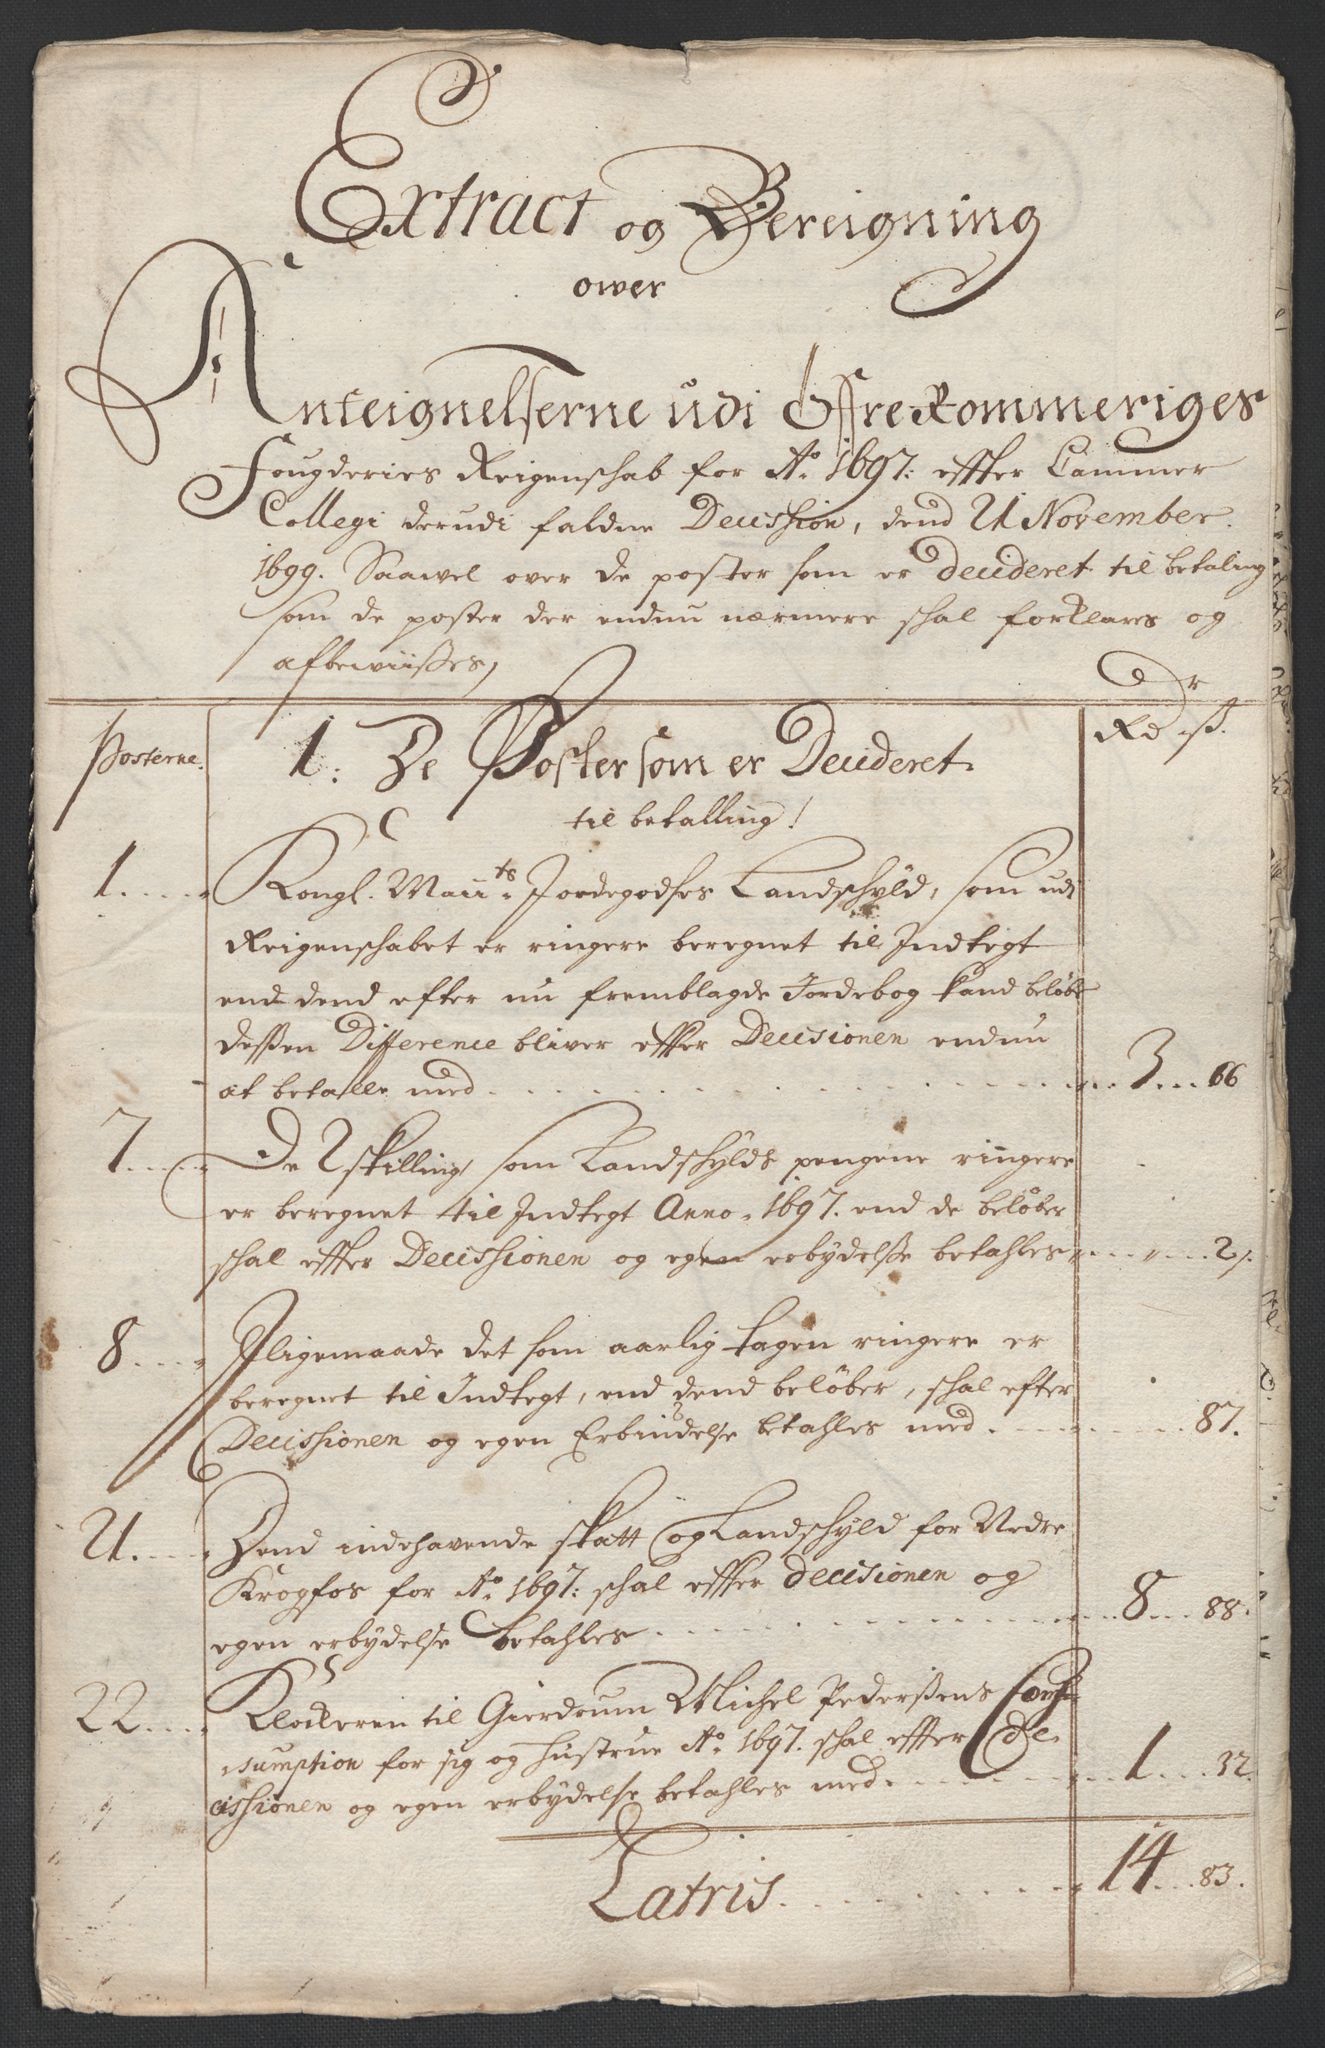 Extract og Bereigning
ower
Anteignelserne udi Öffre Rommeriges
Fougderies Reigenschab for Aº 1697: effter Cammer
Collegi derudi faldne Decission, dend 21 November.
1699. Saawel over de poster som er decideret til betaling
som de poster der endnu nærmere schal forklares og
afbewiisses,
Posterne.
1: De Poster som er Decideret
til betalling!
Rdr ß.
1 Kongl. Maiits Jordegodses Landschyld, som udi
Reigenschabet er ringere beregnet til Indtegt
end dend efter nu fremblagde Jordebog kand beløbe
dessen Difference bliver effter Decisionen endnu
at betalle med 3 66
7 De 2 skilling som Landschylds pengene ringere
er beregnet til Indtegt Anno 1697. end de beløber
schal effter Decissionen og egen erbydelsse betahles " " 2.
8 Iligemaade det som aarlig tagen ringere er
beregnet til Indtegt, end dend beløber, schal efter
Decissionen og egen Erbindelse betahles med 87.
21 Dend indehavende skatt og Landschyld for Nedre
Krogfos for Aº 1697: schal effter decisionen og
egen erbydelse betahles 8 88.
22 Klockeren til Gierdrum Michel Pederssens Con-
sumption for sig og hustrue Aº 1697. schal effter de-
cissionen og egen erbydelse betahles med 1 32.
Latris 14 83.